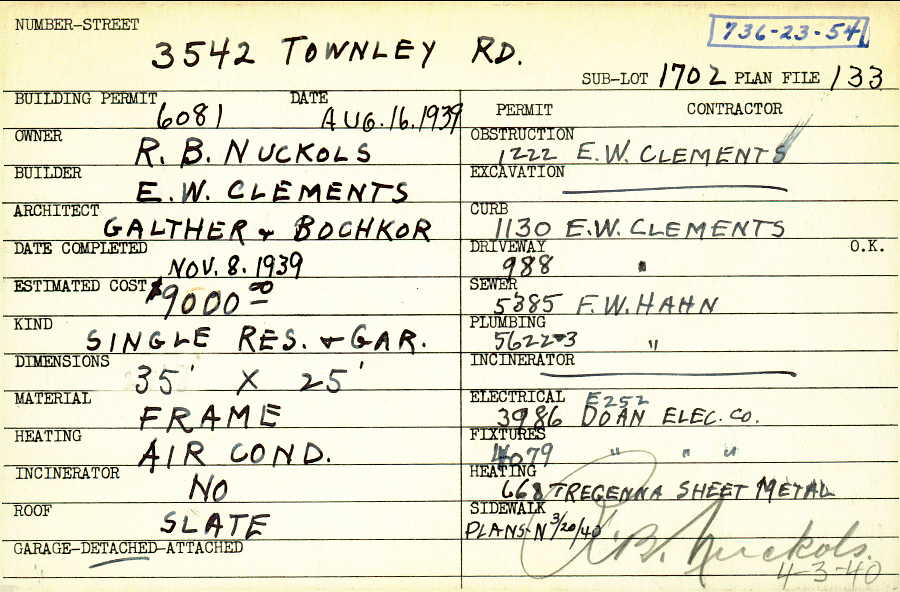 NUMBER-STREET
736-23-54
3542 TOWNLEY RD.
SUB-LOT 1702 PLAN FILE 133
BUILDING PERMIT DATE
6081 AUG. 16. 1939
OWNER
R. B. NUCKOLS
BUILDER
E. W. CLEMENTS
ARCHITECT
GALTHER & BOCHKOR
DATE COMPLETED
NOV. 8. 1939
ESTIMATED COST $9000 00
KIND
SINGLE RES. & GAR.
DIMENSIONS
35' X 25'
MATERIAL
FRAME
HEATING
AIR COND.
INCINERATOR
NO
ROOF
SLATE
GARAGE-DETACHED-ATTACHED
PERMIT CONTRACTOR
OBSTRUCTION
1222 E. W. CLEMENTS
EXCAVATION
CURB
1130 E. W. CLEMENTS
DRIVEWAY O.K.
988 "
SEWER
5385 F. W. HAHN
PLUMBING
"
INCINERATOR
ELECTRICAL E252
3986 DOAN ELEC. CO.
FIXTURES
4079 " " "
HEATING
668 TREGENNA SHEET METAL
SIDEWALK
PLANS-N 3/20/40
R. B. Nuckols.
4-3-40